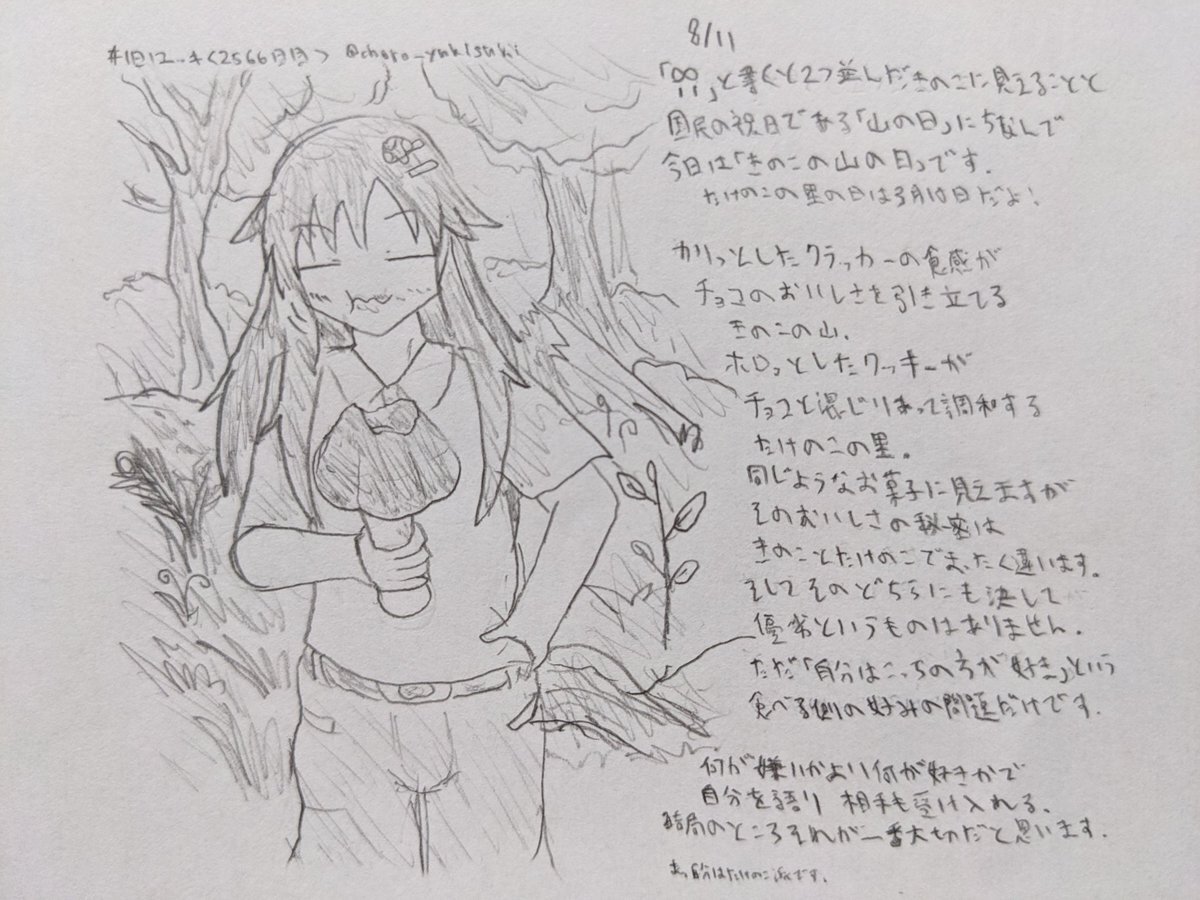 #1日12..キ<2566日目> @choro_yukisukii
8/11
「8/11」と書くと2つ並んだきのこに見えることと
国民の祝日である「山の日」にちなんで
今日は「きのこの山の日」です.
たけのこの里の日は3月10日だよ!
カリッとしたクラッカーの食感が
チョコのおいしさを引き立てる
きのこの山.
ホロッとしたクッキーが
チョコと混じりあって調和する
たけのこの里。
同じようなお菓子に見えますが
そのおいしさの秘密は
きのことたけのこでまったく違います。
そしてそのどちらにも決して
優劣というものはありません.
ただ「自分はこっちの方が好き」という
食べる側の好みの問題だけです.
何が嫌いかより何が好きかで
自分を語り 相手も受け入れる.
結局のところそれが一番大切だと思います.
あっ自分はたけのこ派です.